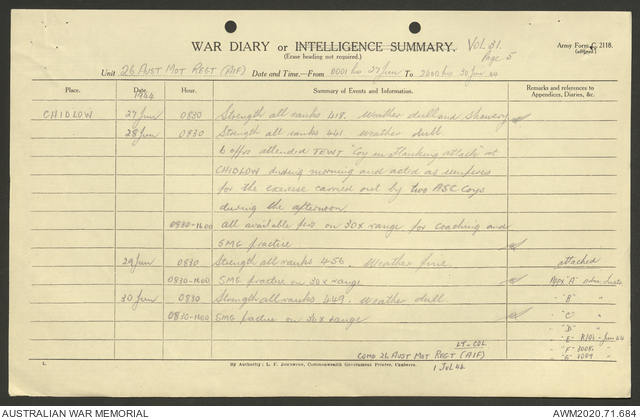 WAR DIARY or INTELLIGENCE SUMMARY. Vol. 31. Page 5
(Erase heading not required.)
Army Form C. 2118.
Unit 26 AUST MOT REGT (AIF) Date and Time.—From 0001 hrs 27 Jun To 2400 hrs 30 Jun 44
Place. Date 1944 Hour. Summary of Events and Information. Remarks and references to Appendices, Diaries, &c.
CHIDLOW 27 Jun 0830 Strength all ranks 418. Weather dull and showery
28 Jun 0830 Strength all ranks 441. Weather dull.
6 offrs attended TEWT "Coy in Flanking attack" at
CHIDLOW during morning and acted as umpires
for the exercise carried out by two ASC Coys
during the afternoon.
0830-1600 all available pers on 30x range for coaching and
SMG practice
29 Jun 0830 Strength all ranks 456. Weather fine attached
0830-1600 SMG practice on 30x range Appx "A"
30 Jun 0830 Strength all ranks 449. Weather dull "B" "
0830-1600 SMG practice on 30x range "C" "
"D" "
LT-COL "E"
COMD 26 AUST MOT REGT (AIF) "F"
1 Jul 44 "G"
L. By Authority: L. F. Johnston, Commonwealth Government Printer, Canberra.
AUSTRALIAN WAR MEMORIAL AWM2020.71.684